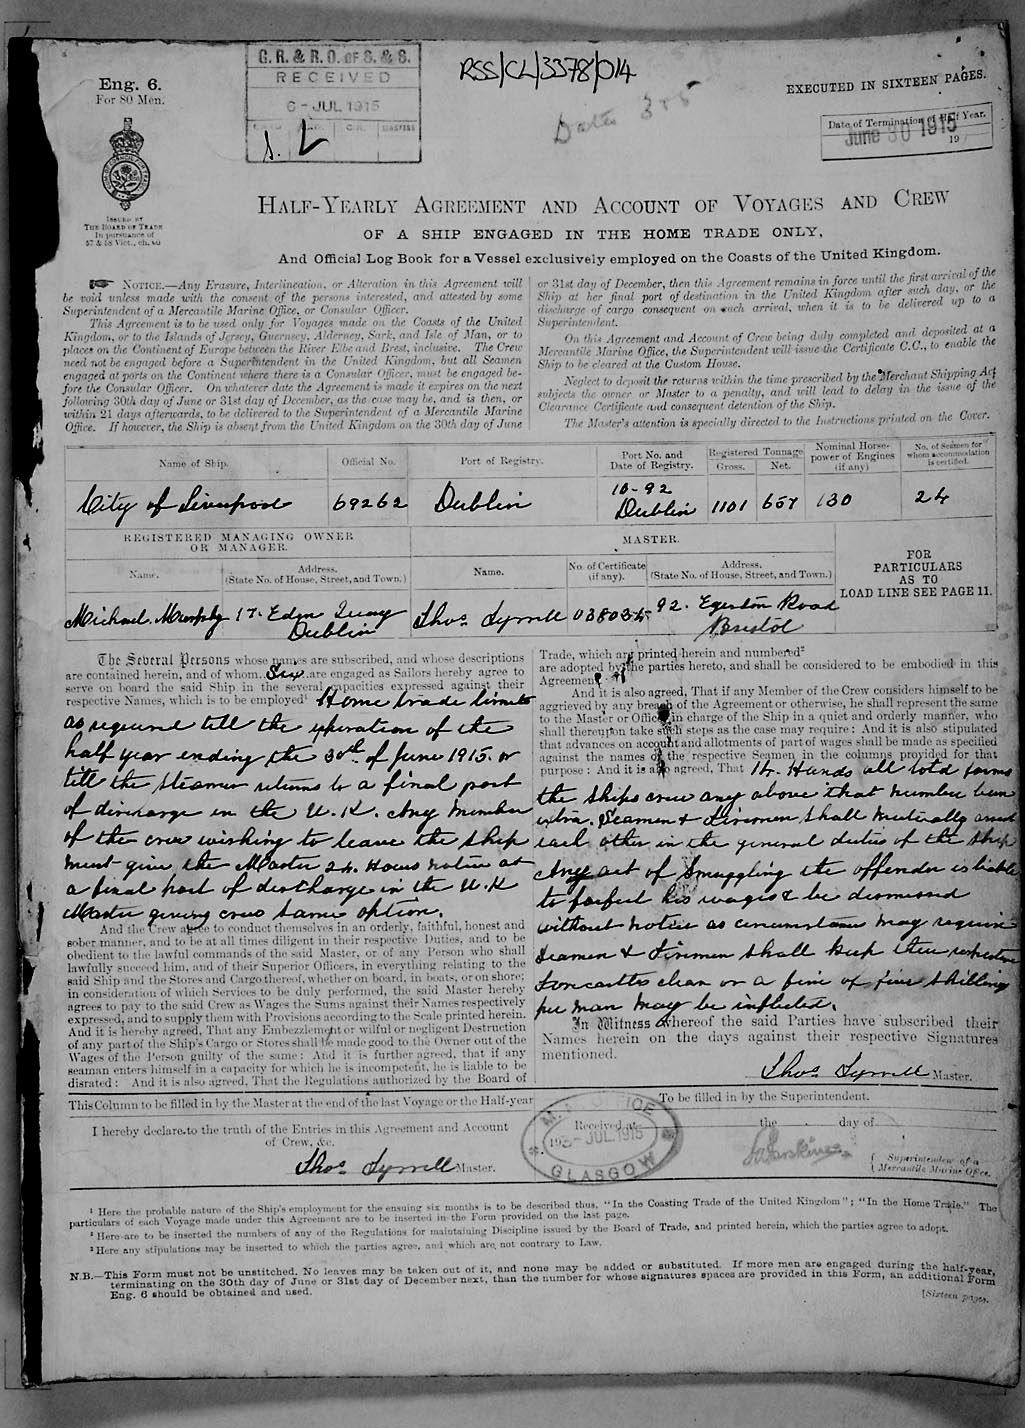 Eng. 6.
For 80 Men.
G. R. & R. O. OF S. & S.
RECEIVED
6 - JUL 1915
MASTERS
S. L
RSS/CL/3378/014
EXECUTED IN SIXTEEN PAGES.
Date of Termination of Half Year.
June 30 1915
19
ISSUED BY
THE BOARD OF TRADE
In pursuance of
57 & 58 Vict., ch. 60
HALF-YEARLY AGREEMENT AND ACCOUNT OF VOYAGES AND CREW
OF A SHIP ENGAGED IN THE HOME TRADE ONLY,
And Official Log Book for a Vessel exclusively employed on the Coasts of the United Kingdom.
NOTICE.—Any Erasure, Interlineation, or Alteration in this Agreement will
be void unless made with the consent of the persons interested, and attested by some
Superintendent of a Mercantile Marine Office, or Consular Officer.
This Agreement is to be used only for Voyages made on the Coasts of the United
Kingdom, or to the Islands of Jersey, Guernsey, Alderney, Sark, and Isle of Man, or to
places on the Continent of Europe between the River Elbe and Brest, inclusive. The Crew
need not be engaged before a Superintendent in the United Kingdom, but all Seamen
engaged at ports on the Continent where there is a Consular Officer, must be engaged be-
fore the Consular Officer. On whatever date the Agreement is made it expires on the next
following 30th day of June or 31st day of December, as the case may be, and is then, or
within 21 days afterwards, to be delivered to the Superintendent of a Mercantile Marine
Office. If however, the Ship is absent from the United Kingdom on the 30th day of June
or 31st day of December, then this Agreement remains in force until the first arrival of the
Ship at her final port of destination in the United Kingdom after such day, or the
discharge of cargo consequent on such arrival, when it is to be delivered up to a
Superintendent.
On this Agreement and Account of Crew being duly completed and deposited at a
Mercantile Marine Office, the Superintendent will issue the Certificate C.C., to enable the
Ship to be cleared at the Custom House.
Neglect to deposit the returns within the time prescribed by the Merchant Shipping Act
subjects the owner or Master to a penalty, and will lead to delay in the issue of the
Clearance Certificate and consequent detention of the Ship.
The Master's attention is specially directed to the Instructions printed on the Cover.
Name of Ship. Official No. Port of Registry. Port No. and Date of Registry. Registered Tonnage Gross. Net. Nominal Horse-power of Engines (if any) No. of Seamen for whom accommodation is certified.
City of Liverpool 69262 Dublin 10-92 Dublin 1101 657 130 24
REGISTERED MANAGING OWNER
OR MANAGER.
MASTER.
FOR
PARTICULARS
AS TO
LOAD LINE SEE PAGE 11.
Name. Address. (State No. of House, Street, and Town.) Name. No. of Certificate (if any). Address. (State No. of House, Street, and Town.)
Michael Murphy 17. Eden Quay Dublin Thos Tyrrell 038035 92. Egerton Road Bristol
The Several Persons whose names are subscribed, and whose descriptions
are contained herein, and of whom Six are engaged as Sailors hereby agree to
serve on board the said Ship in the several capacities expressed against their
respective Names, which is to be employed¹ Home trade limits
as required till the expiration of the
half year ending the 30th of June 1915. or
till the steamer returns to a final port
of discharge in the U. K. Any member
of the crew wishing to leave the ship
must give the Master 24. Hours notice at
a final port of discharge in the U. K
Master giving crew same option.
And the Crew agree to conduct themselves in an orderly, faithful, honest and
sober manner, and to be at all times diligent in their respective Duties, and to be
obedient to the lawful commands of the said Master, or of any Person who shall
lawfully succeed him, and of their Superior Officers, in everything relating to the
said Ship and the Stores and Cargo thereof, whether on board, in boats, or on shore;
in consideration of which Services to be duly performed, the said Master hereby
agrees to pay to the said Crew as Wages the Sums against their Names respectively
expressed, and to supply them with Provisions according to the Scale printed herein.
And it is hereby agreed, That any Embezzlement or wilful or negligent Destruction
of any part of the Ship's Cargo or Stores shall be made good to the Owner out of the
Wages of the Person guilty of the same: And it is further agreed, that if any
seaman enters himself in a capacity for which he is incompetent, he is liable to be
disrated: And it is also agreed, That the Regulations authorized by the Board of
Trade, which are printed herein and numbered²
are adopted by the parties hereto, and shall be considered to be embodied in this
Agreement
And it is also agreed, That if any Member of the Crew considers himself to be
aggrieved by any breach of the Agreement or otherwise, he shall represent the same
to the Master or Officer in charge of the Ship in a quiet and orderly manner, who
shall thereupon take such steps as the case may require: And it is also stipulated
that advances on account and allotments of part of wages shall be made as specified
against the names of the respective Seamen in the columns provided for that
purpose: And it is also agreed, That 14. Hands all told forms
the ships crew any above that number
extra. Seamen & Firemen shall mutually assist
each other in the general duties of the ship
Any act of Smuggling the offender is liable
to forfeit his wages & be dismissed
without notice as circumstances may require
Seamen & Firemen shall keep their respective
Forecastles clean or a fine of five shillings
per man may be inflicted.
In Witness whereof the said Parties have subscribed their
Names herein on the days against their respective Signatures
mentioned.
Thos Tyrrell Master.
This Column to be filled in by the Master at the end of the last Voyage or the Half-year
To be filled in by the Superintendent.
I hereby declare to the truth of the Entries in this Agreement and Account
of Crew, &c.
Thos Tyrrell Master.
Received at the day of
M. M. OFFICE
3 - JUL 1915
GLASGOW
Superintendent of a
Mercantile Marine Office.
¹ Here the probable nature of the Ship's employment for the ensuing six months is to be described thus, "In the Coasting Trade of the United Kingdom"; "In the Home Trade." The
particulars of each Voyage made under this Agreement are to be inserted in the Form provided on the last page.
² Here are to be inserted the numbers of any of the Regulations for maintaining Discipline issued by the Board of Trade, and printed herein, which the parties agree to adopt.
³ Here any stipulations may be inserted to which the parties agree, and which are not contrary to Law.
N.B.—This Form must not be unstitched. No leaves may be taken out of it, and none may be added or substituted. If more men are engaged during the half-year,
terminating on the 30th day of June or 31st day of December next, than the number for whose signatures spaces are provided in this Form, an additional Form
Eng. 6 should be obtained and used.
[Sixteen pages.